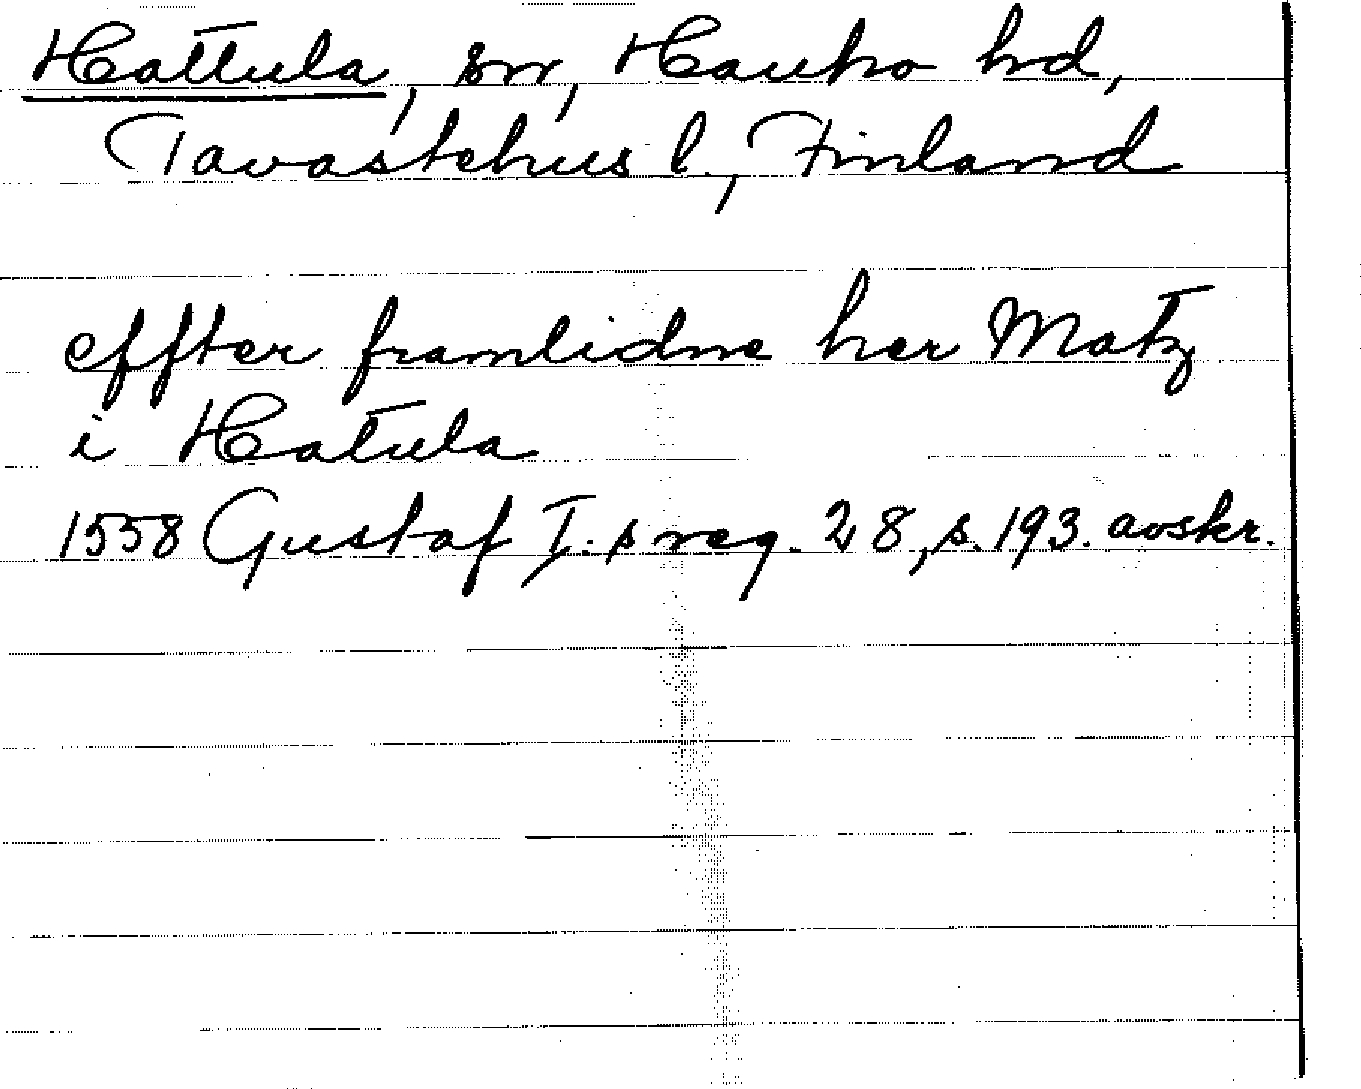 Hattula, sn, Hauho hd,
Tavastehus l., Finland
effter framlidne her Matz
i Hatula
1558 Gustaf I:s reg. 28, s. 193. avskr.